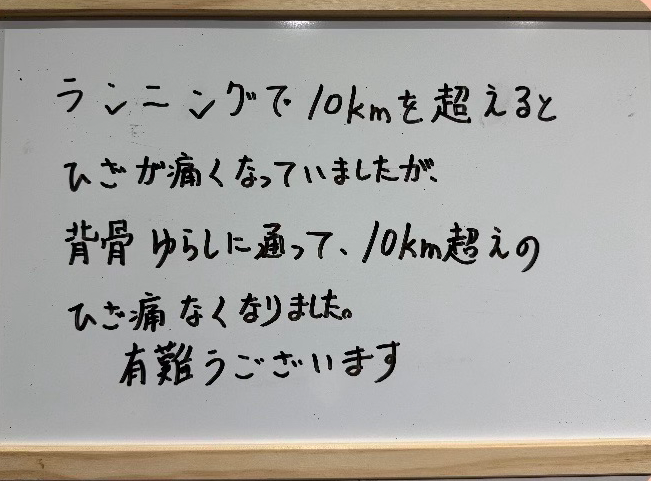 ランニングで10kmを超えると
ひざが痛くなっていましたが、
背骨ゆらしに通って、10km超えの
ひざ痛なくなりました。
有難うございます